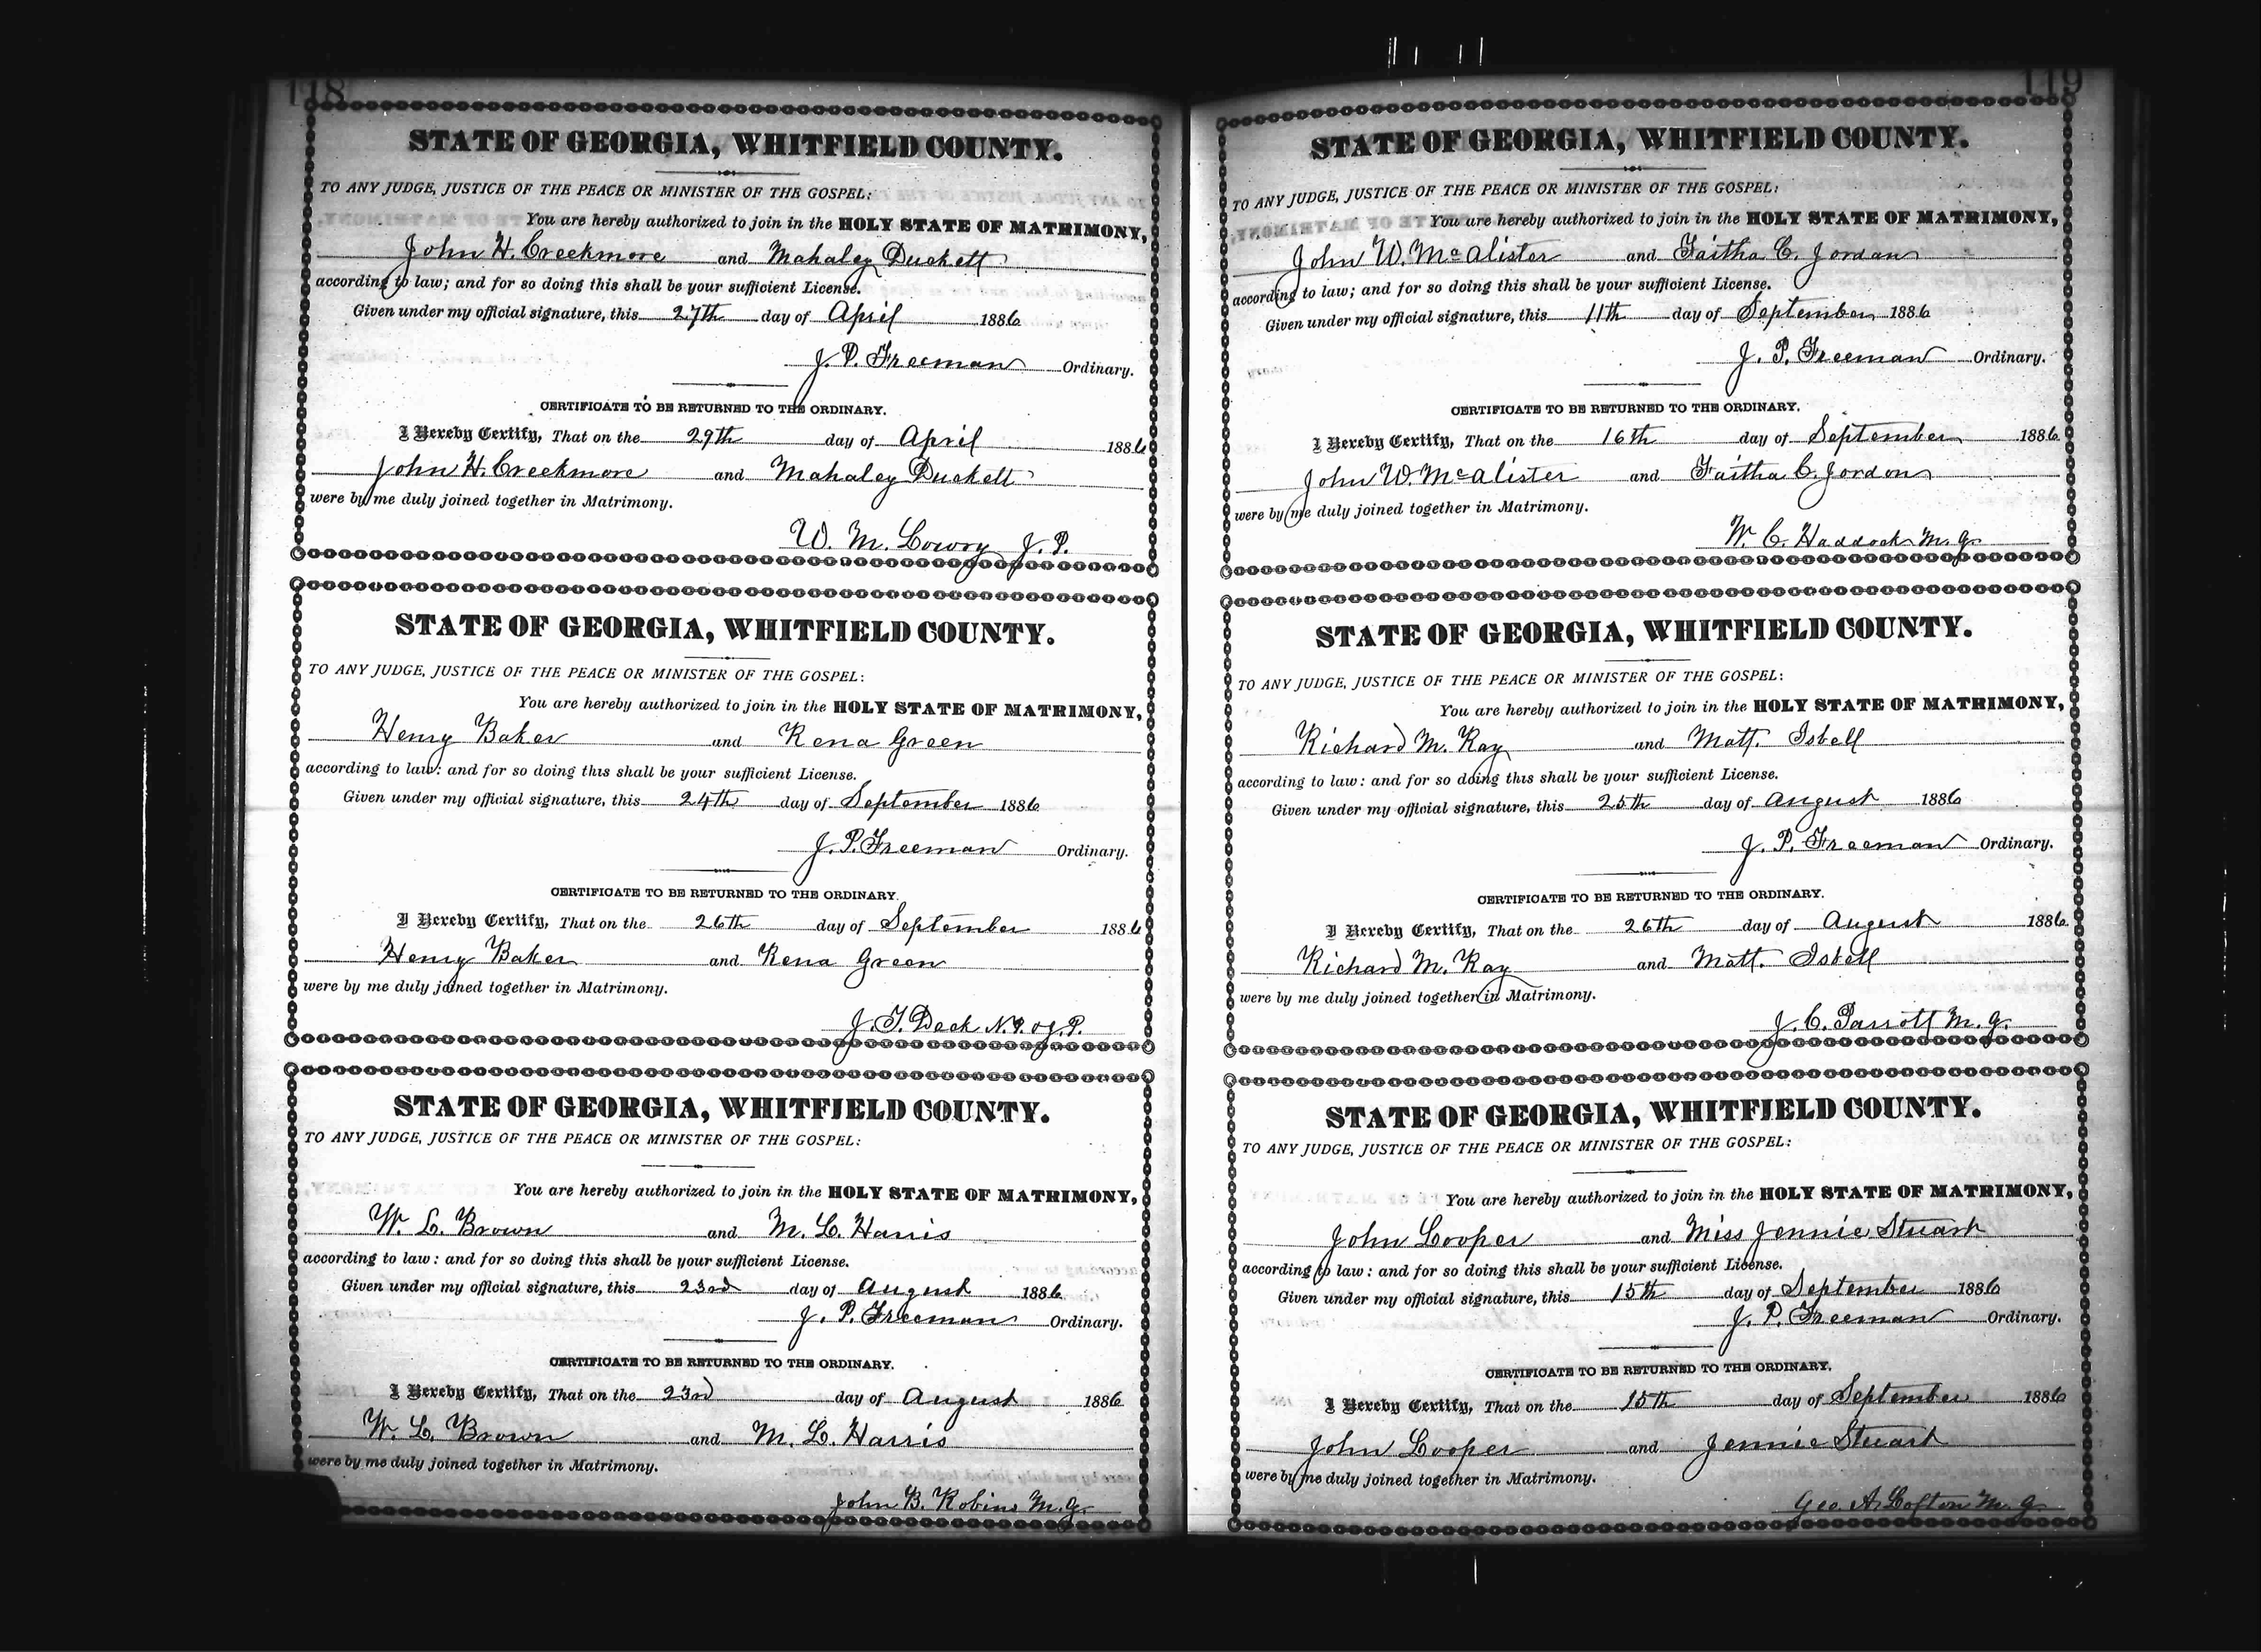 118
STATE OF GEORGIA, WHITFIELD COUNTY.
TO ANY JUDGE, JUSTICE OF THE PEACE OR MINISTER OF THE GOSPEL:
You are hereby authorized to join in the HOLY STATE OF MATRIMONY,
John H. Creekmore and Mahaley Duckett
according to law; and for so doing this shall be your sufficient License.
Given under my official signature, this 27th day of April 1886
J. P. Freeman Ordinary.
CERTIFICATE TO BE RETURNED TO THE ORDINARY.
I Hereby Certify, That on the 29th day of April 1886
John H. Creekmore and Mahaley Duckett
were by me duly joined together in Matrimony.
W. M. Lowry J. P.
STATE OF GEORGIA, WHITFIELD COUNTY.
TO ANY JUDGE, JUSTICE OF THE PEACE OR MINISTER OF THE GOSPEL:
You are hereby authorized to join in the HOLY STATE OF MATRIMONY,
Henry Baker and Rena Green
according to law: and for so doing this shall be your sufficient License.
Given under my official signature, this 24th day of September 1886
J. P. Freeman Ordinary.
CERTIFICATE TO BE RETURNED TO THE ORDINARY.
I Hereby Certify, That on the 26th day of September 1886
Henry Baker and Rena Green
were by me duly joined together in Matrimony.
J. T. Deck N. P. J. P.
STATE OF GEORGIA, WHITFIELD COUNTY.
TO ANY JUDGE, JUSTICE OF THE PEACE OR MINISTER OF THE GOSPEL:
You are hereby authorized to join in the HOLY STATE OF MATRIMONY,
W. L. Brown and M. L. Harris
according to law: and for so doing this shall be your sufficient License.
Given under my official signature, this 23rd day of August 1886
J. P. Freeman Ordinary.
CERTIFICATE TO BE RETURNED TO THE ORDINARY.
I Hereby Certify, That on the 23rd day of August 1886
W. L. Brown and M. L. Harris
were by me duly joined together in Matrimony.
John B. Robins M. G.
119
STATE OF GEORGIA, WHITFIELD COUNTY.
TO ANY JUDGE, JUSTICE OF THE PEACE OR MINISTER OF THE GOSPEL:
You are hereby authorized to join in the HOLY STATE OF MATRIMONY,
John W. McAlister and Faitha C. Jordan
according to law; and for so doing this shall be your sufficient License.
Given under my official signature, this 11th day of September 1886
J. P. Freeman Ordinary.
CERTIFICATE TO BE RETURNED TO THE ORDINARY.
I Hereby Certify, That on the 16th day of September 1886
John W. McAlister and Faitha C. Jordon
were by me duly joined together in Matrimony.
W. C. Haddock M. G.
STATE OF GEORGIA, WHITFIELD COUNTY.
TO ANY JUDGE, JUSTICE OF THE PEACE OR MINISTER OF THE GOSPEL:
You are hereby authorized to join in the HOLY STATE OF MATRIMONY,
Richard M. Ray and Matt. Isbell
according to law: and for so doing this shall be your sufficient License.
Given under my official signature, this 25th day of August 1886
J. P. Freeman Ordinary.
CERTIFICATE TO BE RETURNED TO THE ORDINARY.
I Hereby Certify, That on the 26th day of August 1886
Richard M. Ray and Matt. Isbell
were by me duly joined together in Matrimony.
J. C. Parrott M. G.
STATE OF GEORGIA, WHITFIELD COUNTY.
TO ANY JUDGE, JUSTICE OF THE PEACE OR MINISTER OF THE GOSPEL:
You are hereby authorized to join in the HOLY STATE OF MATRIMONY,
John Cooper and Miss Jennie Stuart
according to law: and for so doing this shall be your sufficient License.
Given under my official signature, this 15th day of September 1886
J. P. Freeman Ordinary.
CERTIFICATE TO BE RETURNED TO THE ORDINARY.
I Hereby Certify, That on the 15th day of September 1886
John Cooper and Jennie Stuart
were by me duly joined together in Matrimony.
Geo. A. Lofton M. G.